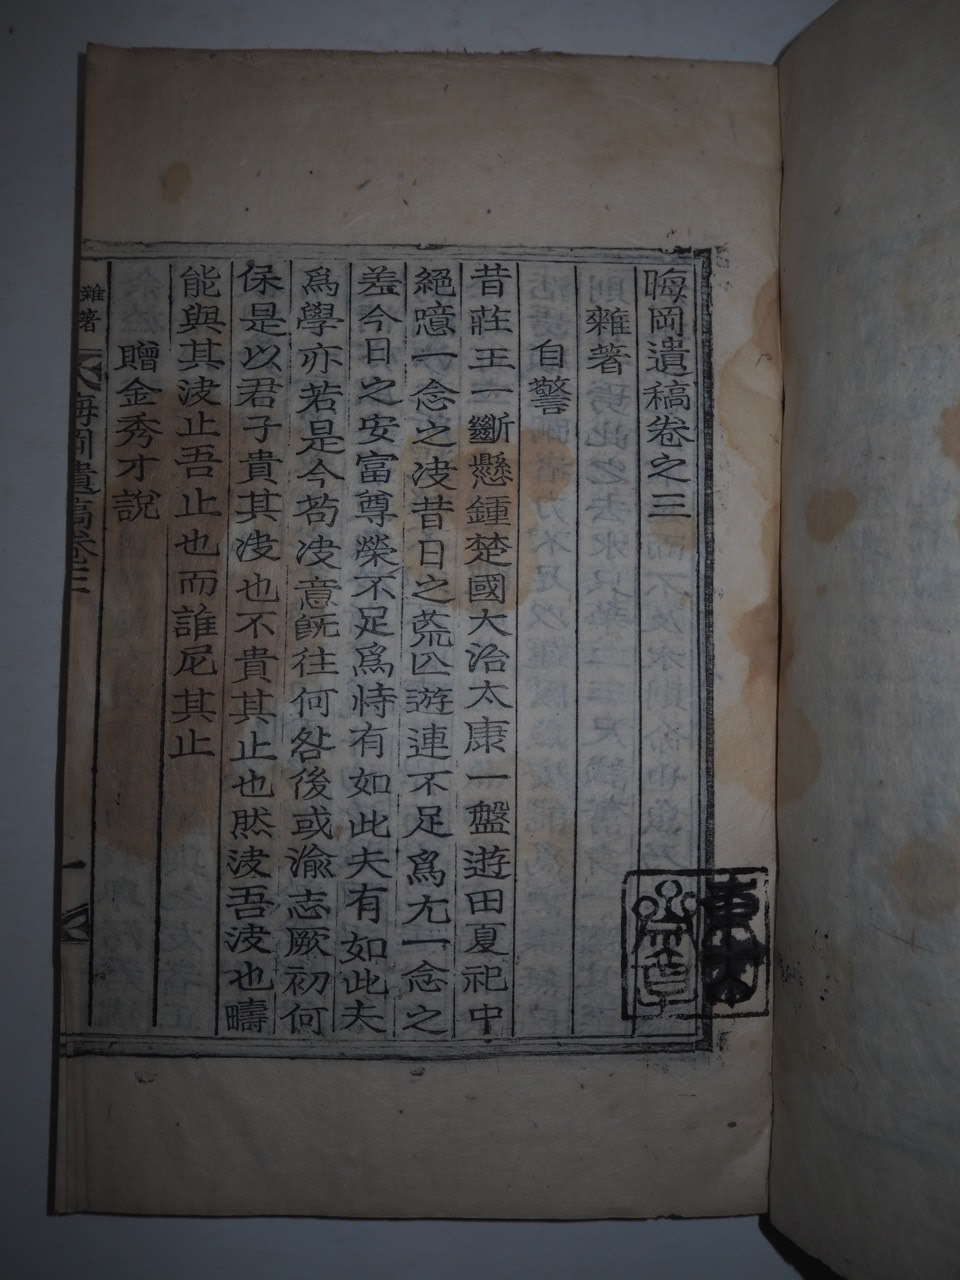 晦岡遺稿卷之三
雜著
自警
昔莊王一斷懸鍾楚國大治太康一盤遊田夏祀中
絕噫一念之浚昔日之荒亾遊連不足爲尢一念之
差今日之安富尊榮不足爲恃有如此夫有如此夫
爲學亦若是今苟浚意旣往何咎後或渝志厥初何
保是以君子貴其浚也不貴其止也然浚吾浚也疇
能與其浚止吾止也而誰尼其止
贈金秀才說
雜著
晦岡遺稿卷三
一